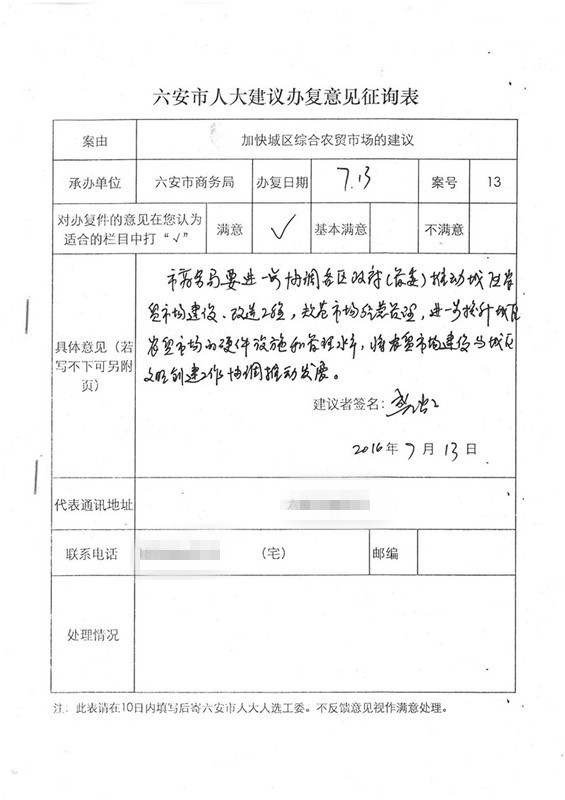 六安市人大建议办复意见征询表
案由 加快城区综合农贸市场的建议
承办单位 六安市商务局 办复日期 7.13 案号 13
对办复件的意见在您认为适合的栏目中打“√” 满意 √ 基本满意 不满意
具体意见（若写不下可另附页）
市商务局要进一步协调各区政府(管委)推动城区农
贸市场建设、改造工程，规范市场经营管理，进一步提升城区
农贸市场的硬件设施和管理水平，将农贸市场建设与城区
文明创建工作协调推动发展。
建议者签名：
2016年7月13日
代表通讯地址 六
联系电话 （宅） 邮编
处理情况
注：此表请在10日内填写后寄六安市人大人选工委。不反馈意见视作满意处理。